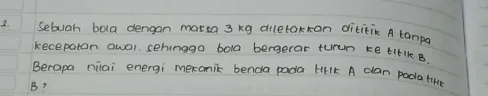 2. Sebuah bola dengan massa 3 kg diletakkan dititik A tanpa
kecepatan awal. sehingga bola bergerak turun ke titik B.
Berapa nilai energi mekanik benda pada titik A dan pada titik
B?